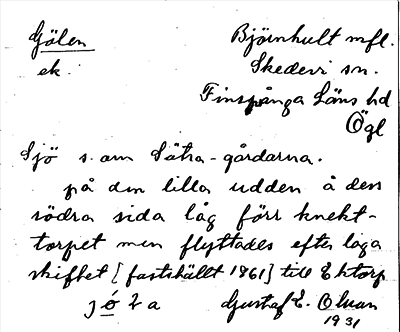 Gölen Björnhult mfl.
ek. Skedevi sn.
Finspånga Läns hd
Ögl
Sjö s. om Sätra-gårdarna.
på den lilla udden å dess
södra sida låg förr knekt-
torpet men flyttades efter laga
skiftet [fastställt 1861] till Ektorp
Gustaf E. Olsson
1931